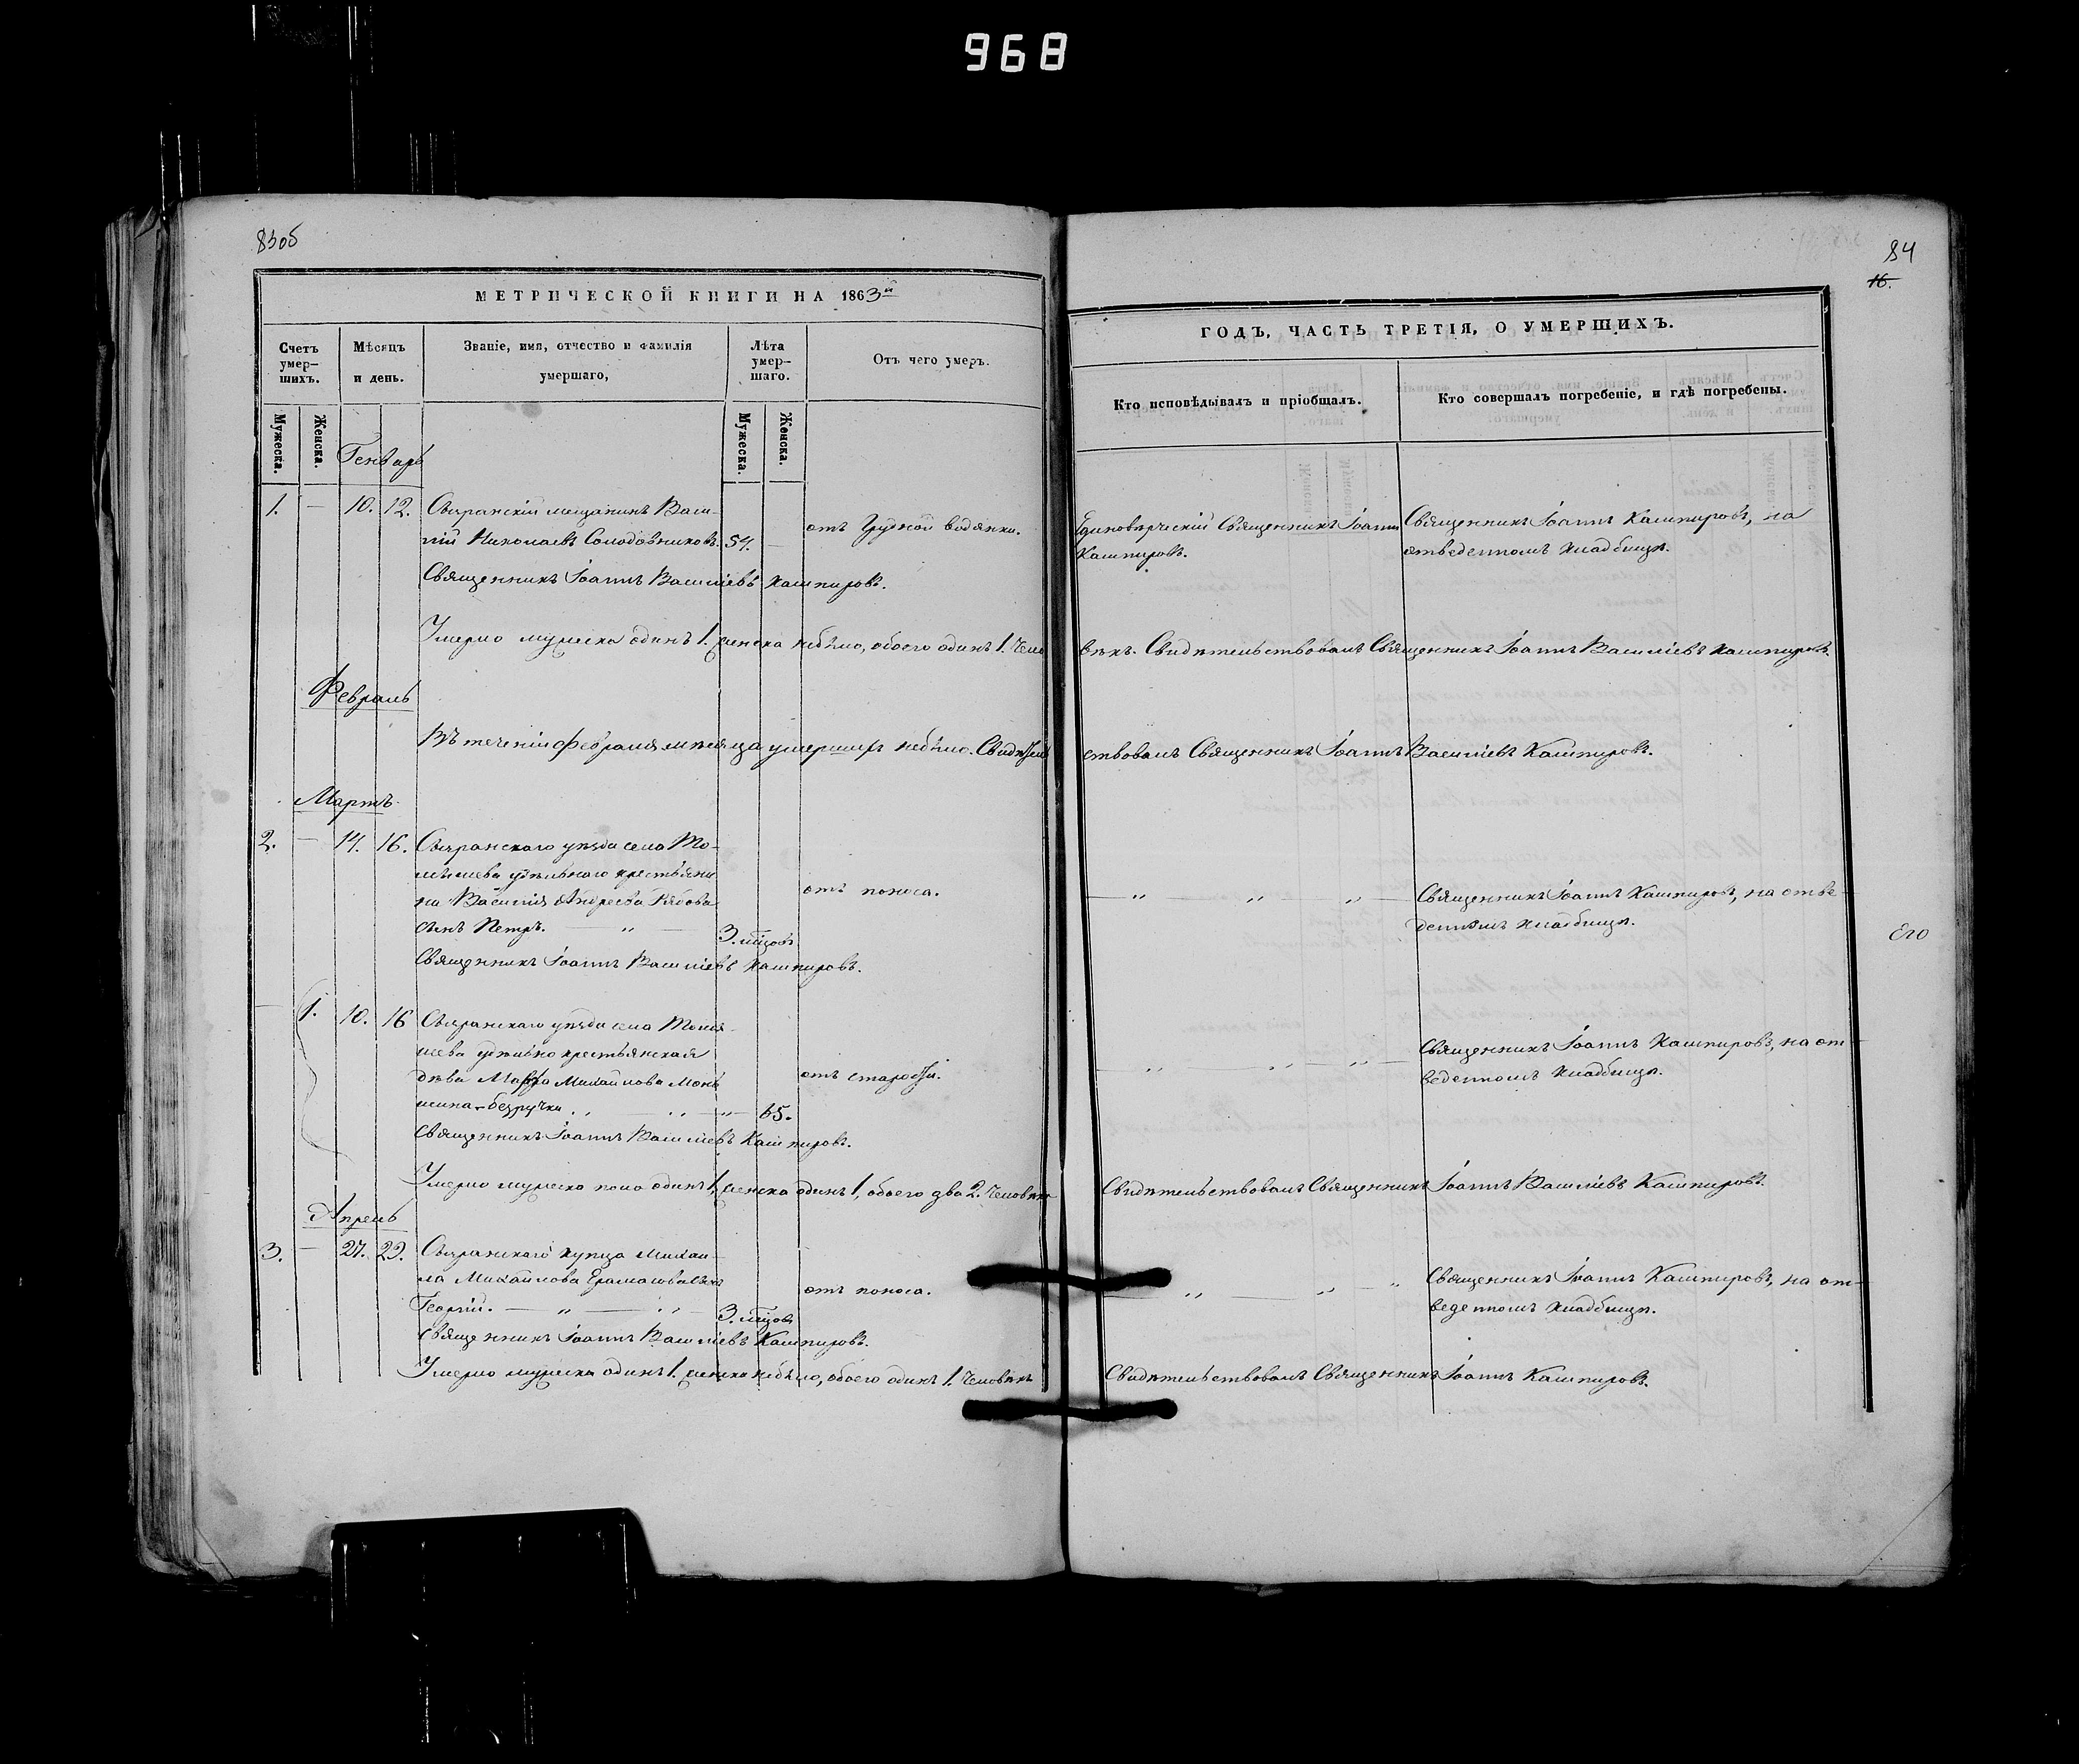 968
83об
МЕТРИЧЕСКОЙ КНИГИ НА 1863й
Счетъ умер-шихъ.
Мѣсяцъ и день.
Званіе, имя, отчество и фамилія умершаго,
Лѣта умер-шаго.
Отъ чего умеръ.
Мужеска.
Женска.
Мужеска.
Женска.
Генварь
1. — 10. 12. Сызранскій мещанинъ Васи-
лій Николаевъ Солодовниковъ. 54. —
отъ грудной водянки.
Священникъ Іоаннъ Васильевъ Кашпировъ.
Умерло мужеска одинъ 1. женска небыло, обоего одинъ 1. чело
Февраль
Въ теченіи Февраля мѣсяца умершихъ небыло. Свидѣтель
Мартъ
2. — 14. 16. Сызранскаго уѣзда села То-
мышева удѣльнаго крестьяни
на Василія Андреева
сынъ Петръ. — „ —
3. мѣсцовъ
отъ поноса.
Священникъ Іоаннъ Васильевъ Кашпировъ.
— 1. 10. 16 Сызранскаго уѣзда села Томы-
шева удѣльно крестьянская
дѣва Марфа Михайлова
65.
отъ старости.
Священникъ Іоаннъ Васильевъ Кашпировъ.
Умерло мужеска пола одинъ 1, женска одинъ 1, обоего два 2. человѣка
Апрель
3. — 27. 29. Сызранскаго купца Михаи-
ла Михайлова сынъ
Георгій. — „ — „ —
3. мѣсцовъ
отъ поноса.
Священникъ Іоаннъ Васильевъ Кашпировъ.
Умерло мужеска одинъ 1. женска небыло, обоего одинъ 1. человѣкъ
84
16.
ГОДЪ, ЧАСТЬ ТРЕТІЯ, О УМЕРШИХЪ.
Кто исповѣдывалъ и пріобщалъ.
Кто совершалъ погребеніе, и гдѣ погребены.
Единовѣрческій Священникъ Іоаннъ
Кашпировъ.
Священникъ Іоаннъ Кашпировъ, на
отведенномъ кладбищѣ.
вѣкъ. Свидѣтельствовалъ Священникъ Іоаннъ Васильевъ Кашпировъ.
ствовалъ Священникъ Іоаннъ Васильевъ Кашпировъ.
— „ — „ — „ —
Священникъ Іоаннъ Кашпировъ, на отве-
денномъ кладбищѣ.
Его
„ „ „ —
Священникъ Іоаннъ Кашпировъ, на от-
веденномъ кладбищѣ.
Свидѣтельствовалъ Священникъ Іоаннъ Васильевъ Кашпировъ.
— „ — „ — „
Священникъ Іоаннъ Кашпировъ, на от-
веденномъ кладбищѣ.
Свидѣтельствовалъ Священникъ Іоаннъ Кашпировъ.